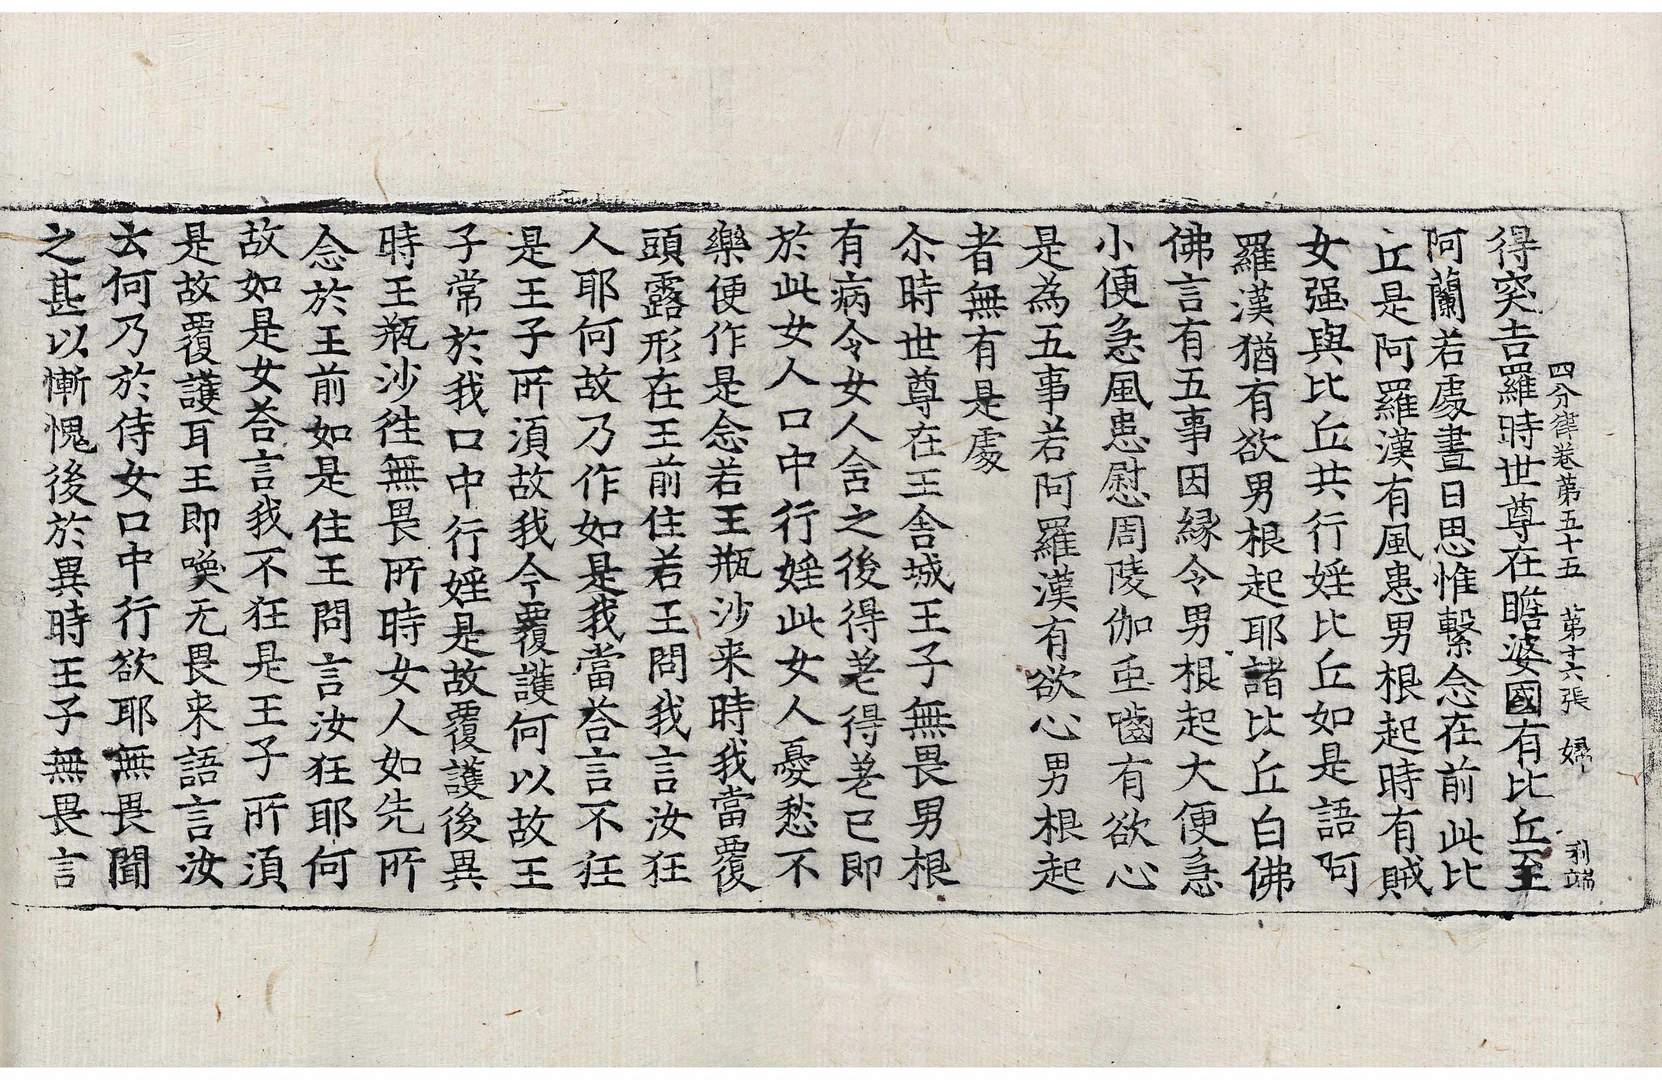 四分律卷第五十五 第十六張 婦 利端
得突吉羅時世尊在瞻婆國有比丘至
阿蘭若處晝日思惟繫念在前此比
丘是阿羅漢有風患男根起時有賊
女强與比丘共行婬比丘如是語阿
羅漢猶有欲男根起耶諸比丘白佛
佛言有五事因緣令男根起大便急
小便急風患慰周陵伽虫嚙有欲心
是為五事若阿羅漢有欲心男根起
者無有是處
尒時世尊在王舍城王子無畏男根
有病令女人含之後得差得差已即
於此女人口中行婬此女人憂愁不
樂便作是念若王瓶沙来時我當覆
頭露形在王前住若王問我言汝狂
人耶何故乃作如是我當荅言不狂
是王子所須故我今覆護何以故王
子常於我口中行婬是故覆護後異
時王瓶沙徃無畏所時女人如先所
念於王前如是住王問言汝狂耶何
故如是女荅言我不狂是王子所須
是故覆護耳王即喚无畏来語言汝
云何乃於侍女口中行欲耶無畏聞
之甚以慚愧後於異時王子無畏言